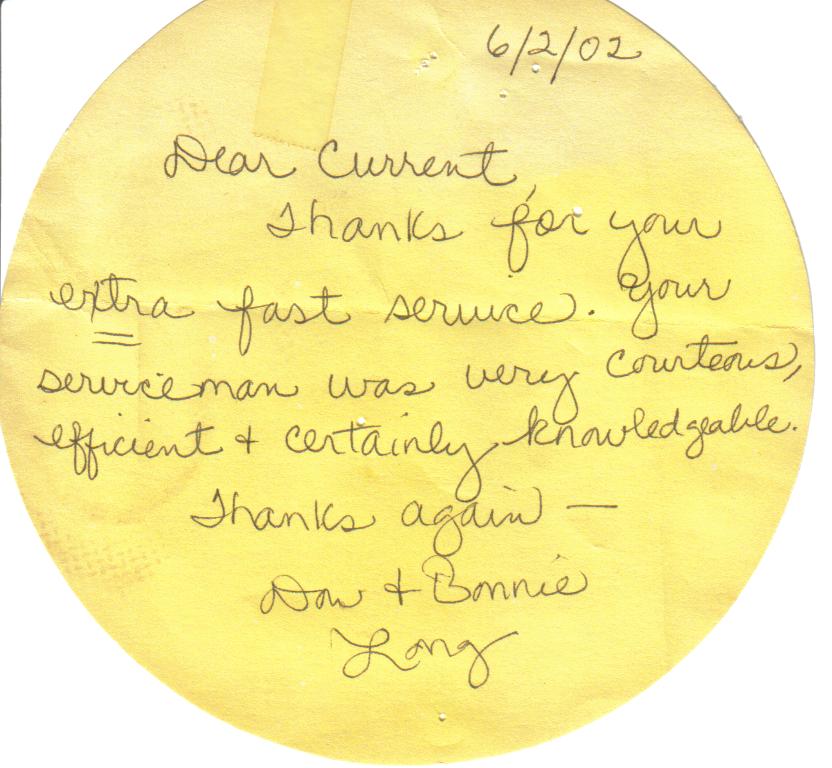 6/2/02
Dear Current,
Thanks for your
extra fast service. Your
serviceman was very courteous,
efficient + certainly knowledgeable.
Thanks again —
Don + Bonnie
Long